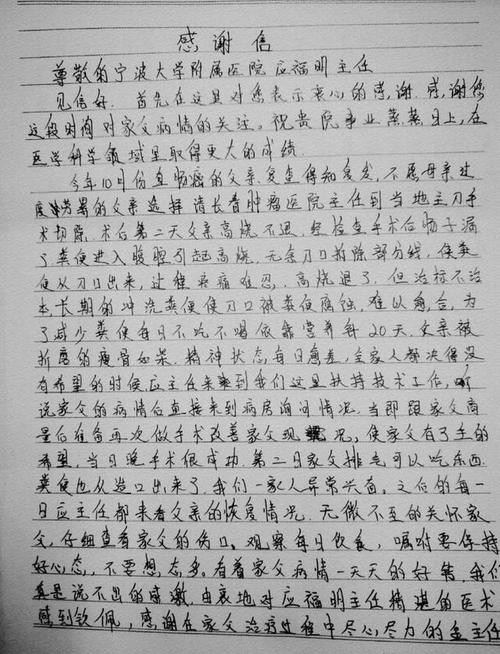 感谢信
尊敬的宁波大学附属医院应福明主任
见信好. 首先在这里对您表示衷心的感谢. 感谢您
这段时间对家父病情的关注。祝贵院事业蒸蒸日上, 在
医学科学领域里取得更大的成绩
今年10月份直肠癌的父亲复查得知复发, 不愿母亲过
度劳累的父亲选择请长春肿瘤医院主任到当地主刀手
术切除, 术后第二天父亲高烧不退, 经检查手术后肠子漏
了粪便进入腹腔引起高烧, 无奈刀口拆除部分线, 使粪
便从刀口出来, 过程疼痛难忍, 高烧退了, 但治标不治
本, 长期的冲洗粪便使刀口被粪便腐蚀, 难以愈合, 为
了减少粪便每日不吃不喝依靠营养科20天. 父亲被
折磨的瘦骨如柴. 精神状态每日愈差, 全家人都决得没
有希望的时候应主任来到我们这里扶持技术工作, 听
说家父的病情后直接来到病房询问情况. 当即跟家父商
量后准备再次做手术改善家父现况, 使家父有了生的
希望, 当日晚手术很成功. 第二日家父排屯可以吃东西.
粪便也从造口出来了, 我们一家人异常兴奋. 之后的每一
日应主任都来看父亲的恢复情况. 无微不至的关怀家
父, 仔细查看家父的伤口, 观察每日饮食, 嘱咐要保持
好心态, 不要想太多. 看着家父病情一天天的好转, 我们
真是说不出的感激. 由衷地对应福明主任精湛的医术
感到钦佩, 感谢在家父治疗过程中尽心尽力的金主任